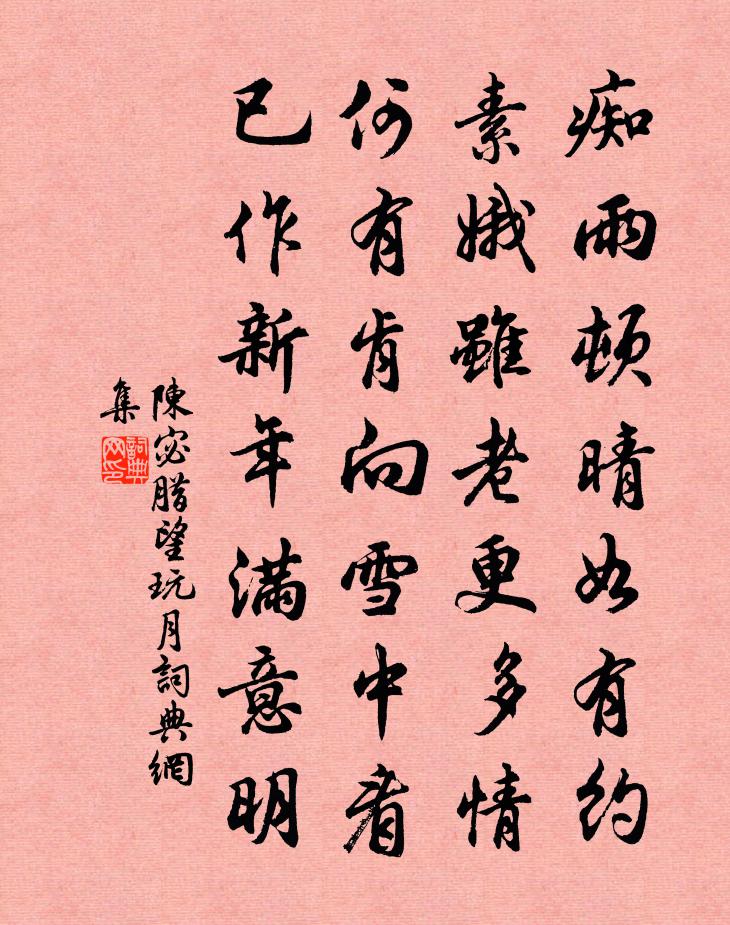 痴雨頓晴如有約
素娥雖老更多情
何有肯向雪中看
已作新年滿意明
陳宓腊望玩月詞典網
集
詞典网印